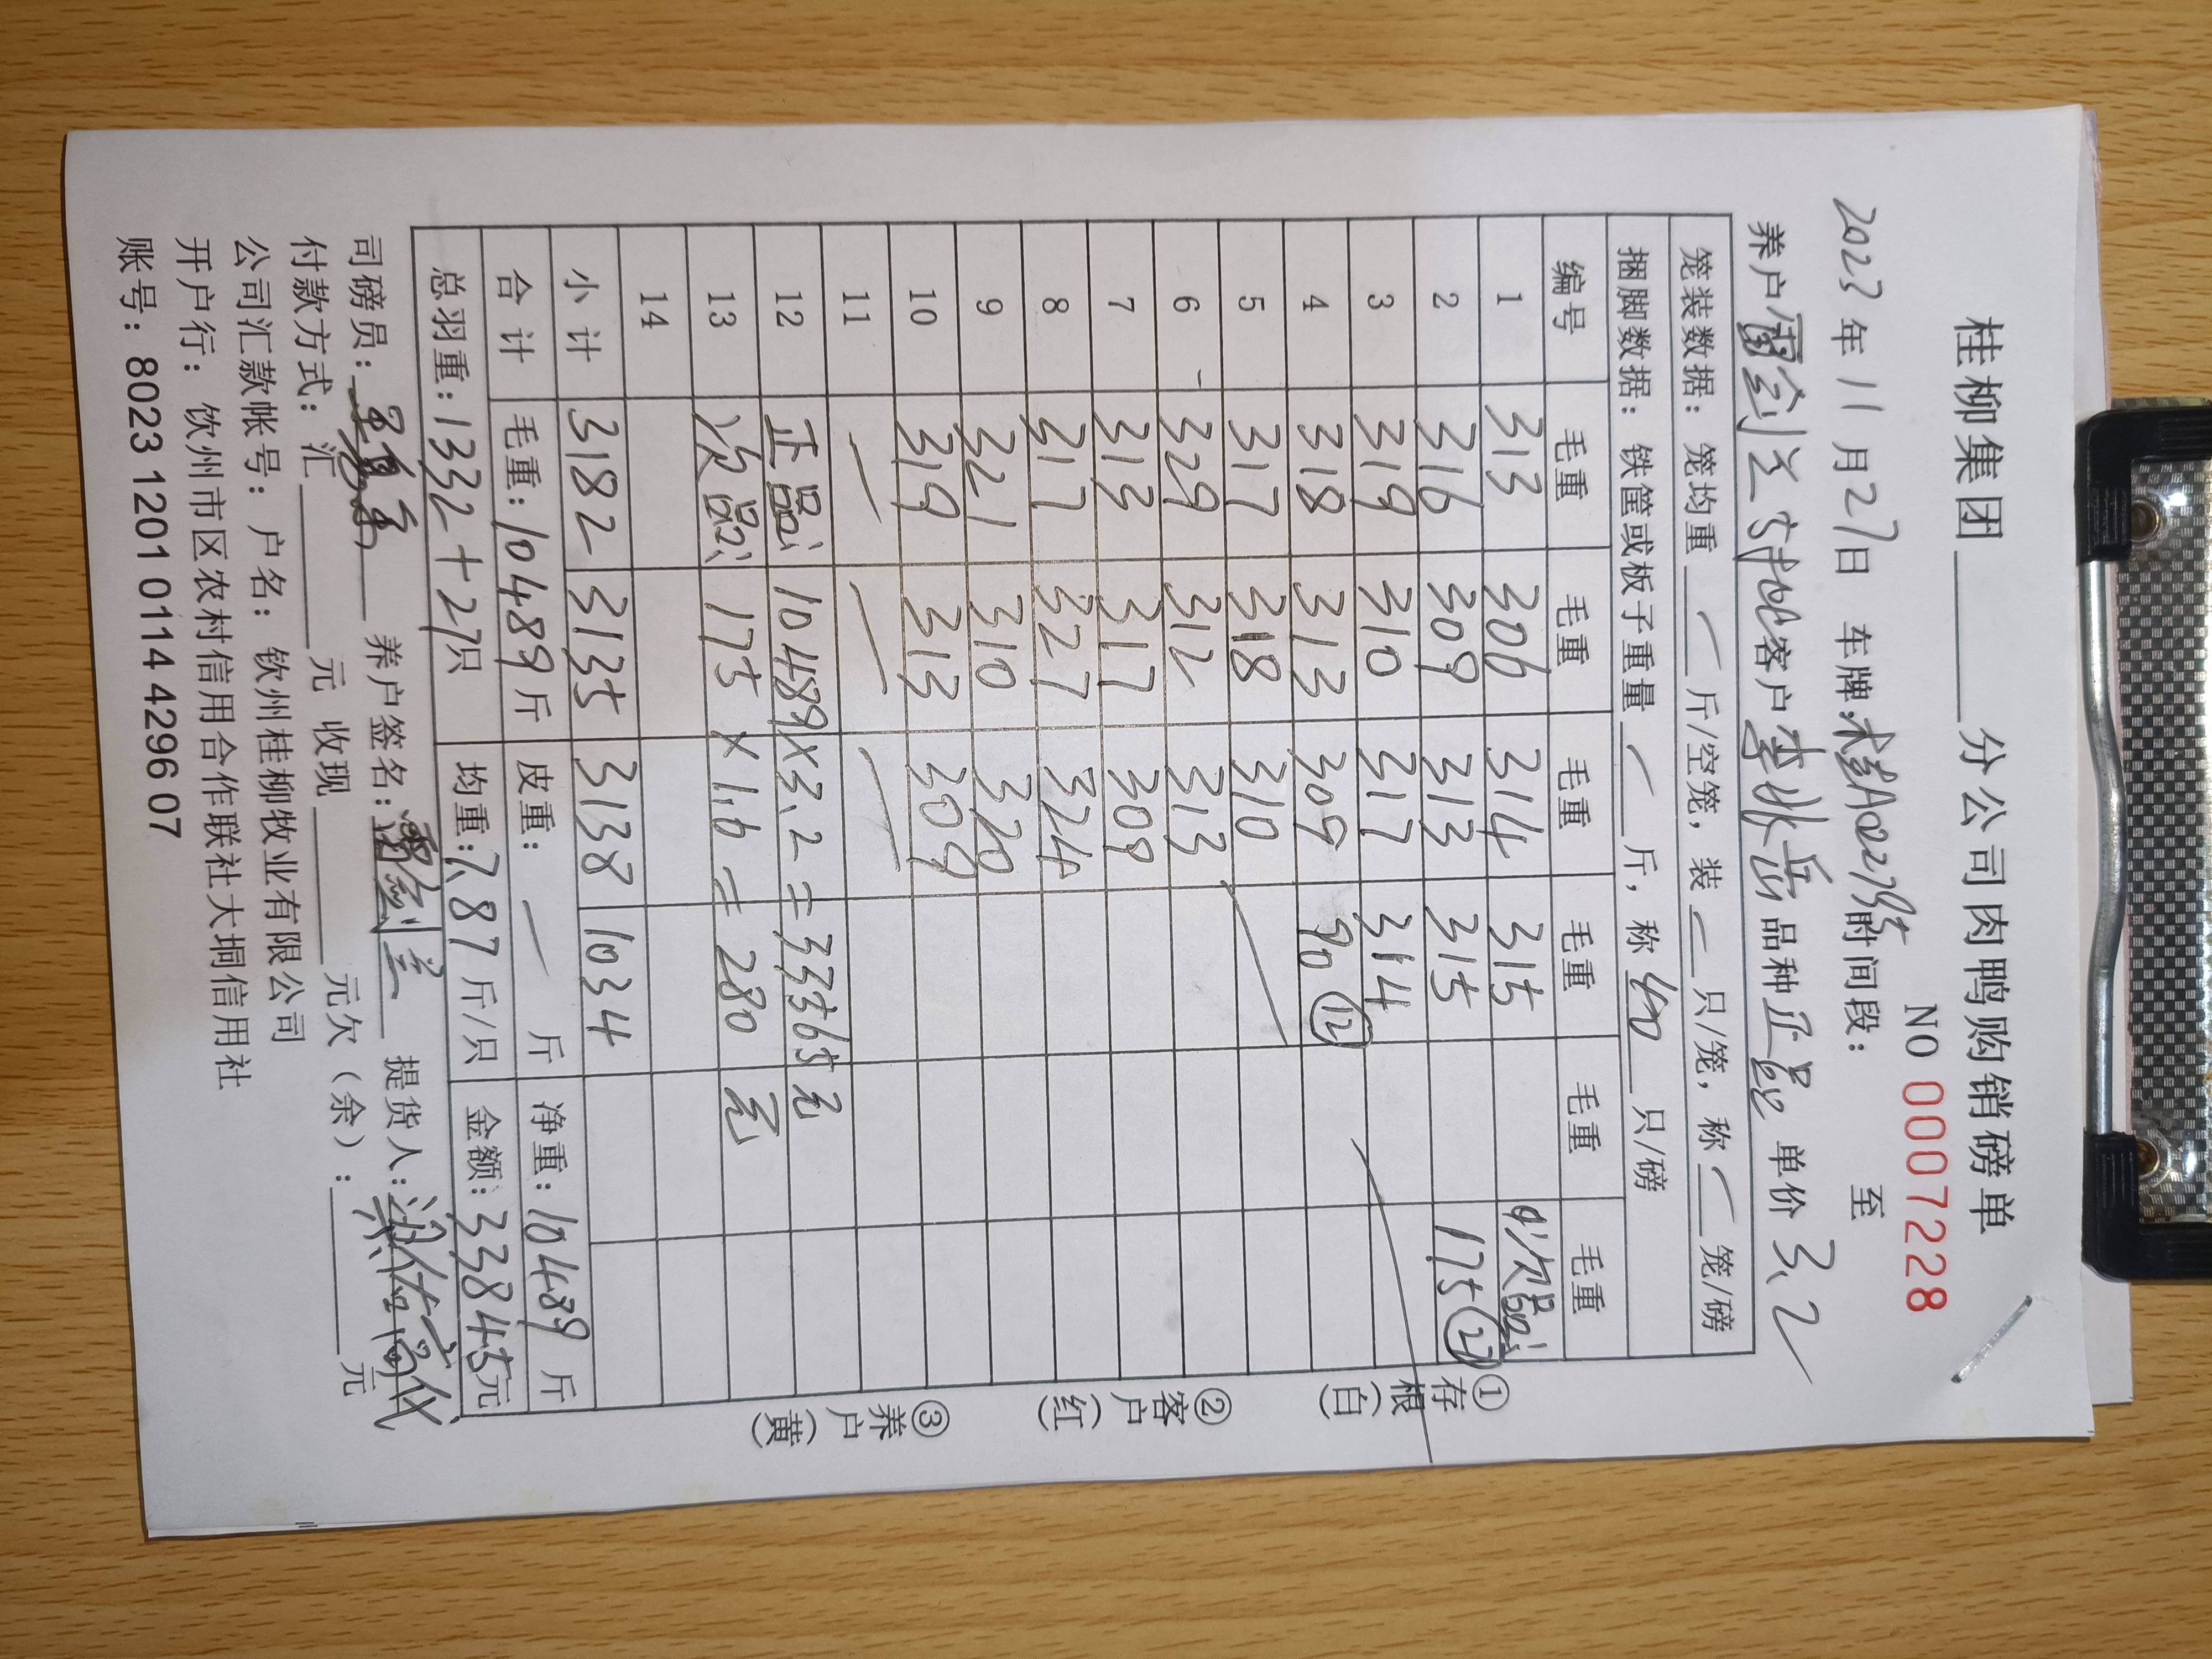 桂柳集团 分公司肉鸭购销磅单
NO 0007228
2023年11月27日 车牌:桂A02795 时间段: 至
养户 客户 李 品种 正品 单价 3.2
笼装数据: 笼均重 — 斤/空笼, 装 — 只/笼, 称 — 笼/磅
捆脚数据: 铁筐或板子重量 — 斤, 称 40 只/磅
编号 毛重 毛重 毛重 毛重 毛重 毛重
1 313 306 314 315 次品:
2 316 309 313 315 175 (27)
3 319 310 317 314
4 318 313 309 90 (12)
5 317 318 310
6 329 312 313
7 313 317 309
8 317 327 324
9 321 310 320
10 319 313 309
11 — — —
12 正品: 10489×3.2=33565元
13 次品: 175×1.6=280元
14
小计 3182 3135 3138 1034
合计 毛重: 10489斤 皮重: — 斤 净重: 10489斤
总羽重: 1332+27只 均重: 7.87斤/只 金额: 33845元
司磅员: 养户签名: 提货人:
付款方式: 汇 元 收现 元欠(余): 元
公司汇款帐号: 户名: 钦州桂柳牧业有限公司
开户行: 钦州市区农村信用合作联社大垌信用社
账号: 8023 1201 0114 4296 07
①存根(白) ②客户(红) ③养户(黄)